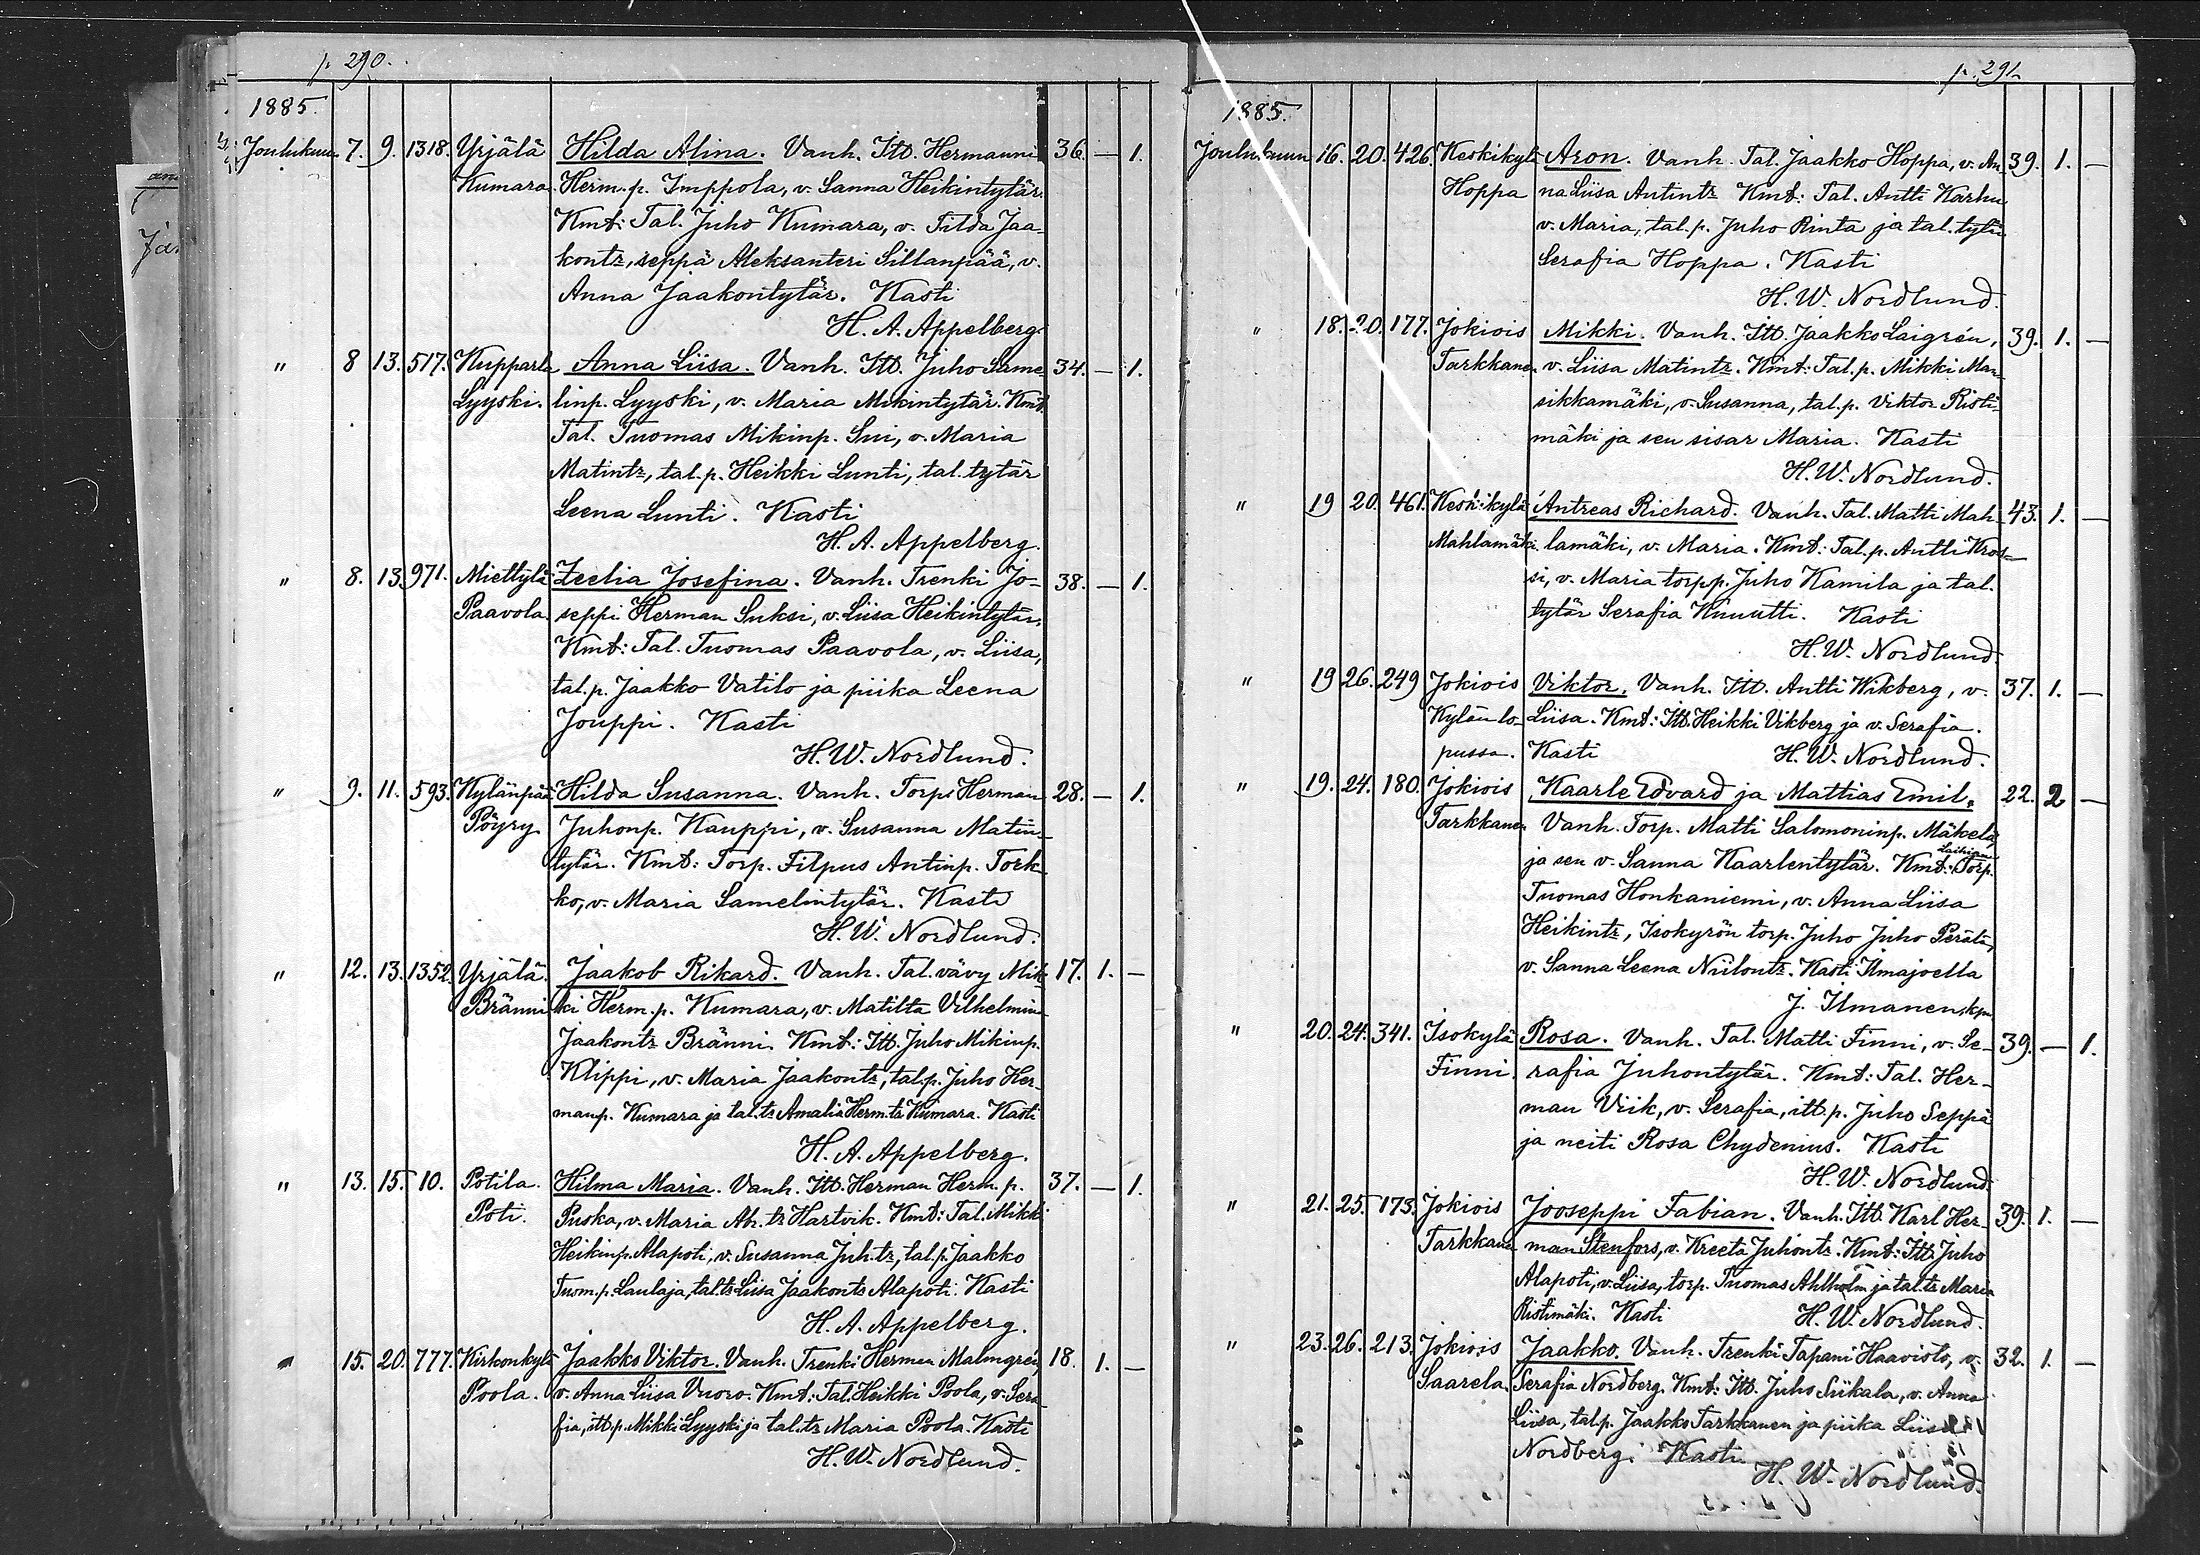 p. 290.
1885.
Joulukuun 7. 9. 1318. Yrjälä Hilda Alina. Vanh. Itt. Hermanni 36. — 1.
Kumara. Herm. p. Imppola, v. Sanna Heikintytär.
Kmt: Tal. Juho Kumara, v. Tilda Jaa-
kontr, seppä Aleksanteri Sillanpää, v.
Anna Jaakontytär. Kasti
H. A. Appelberg.
" 8 13. 517. Kupparla Anna Liisa. Vanh. Itt. Juho Same- 34. — 1.
Lyyski. linp. Lyyski, v. Maria Mikintytär. Kmt.
Tal. Tuomas Mikinp. Sni, v. Maria
Matintr, tal. p. Heikki Lunti, tal. tytär
Leena Lunti. Kasti
H. A. Appelberg.
" 8. 13 971. Miettylä Zeelia Josefina. Vanh. Trenki Jo- 38. — 1.
Paavola. seppi Herman Suksi, v. Liisa Heikintytär,
Kmt: Tal. Tuomas Paavola, v. Liisa,
tal. p. Jaakko Vatilo ja piika Leena
Jouppi. Kasti
H. W. Nordlund.
" 9. 11. 593. Kylänpää Hilda Susanna. Vanh. Torp. Herman 28. — 1.
Pöyry Juhonp. Kauppi, v. Susanna Matin-
tytär. Kmt: Torp. Filpus Antinp. Tork-
ko, v. Maria Samelintytär. Kasti
H. W. Nordlund.
" 12. 13. 1352. Yrjälä. Jaakob Rikard. Vanh. Tal. vävy Mik- 17. 1. —
Bränni ki Herm. p. Kumara, v. Matilta Vilhelmina
Jaakontr Bränni. Kmt: Itt. Juho Mikinp.
Klippi, v. Maria Jaakontr, tal. p. Juho Her-
manp. Kumara ja tal. tr Amalia Herm. tr Kumara. Kasti
H. A. Appelberg.
" 13. 15. 10. Potila. Hilma Maria. Vanh. Itt. Herman Herm. p. 37. — 1.
Poti. Puska, v. Maria Ah. tr Hartvik. Kmt: Tal. Mikki
Heikinp. Alapoti, v. Susanna Juh. tr, tal. p. Jaakko
Tuom. p. Laulaja, tal. tr Liisa Jaakontr Alapoti. Kasti
H. A. Appelberg.
" 15. 20. 777. Kirkonkylä Jaakko Viktor. Vanh. Trenki Herman Malmgrén, 18. 1. —
Poola. v. Anna Liisa Vuoro. Kmt: Tal. Heikki Poola, v. Sera-
fia, itt. p. Mikki Lyyski ja tal. tr Maria Poola. Kasti
H. W. Nordlund.
p. 291.
1885.
Joulukuun 16. 20. 426. Keskikylä Aron. Vanh. Tal. Jaakko Hoppa, v. An- 39. 1. —
Hoppa na Liisa Antintr. Kmt: Tal. Antti Karhu
v. Maria, tal. p. Juho Rinta ja tal. tytär
Serafia Hoppa. Kasti
H. W. Nordlund.
" 18. 20. 177. Jokiois Mikki. Vanh. Itt. Jaakko Laigrén, 39. 1. —
Tarkkanen v. Liisa Matintr. Kmt: Tal. p. Mikki Man-
sikkamäki, v. Susanna, tal. p. Viktor Risti-
mäki ja sen sisar Maria. Kasti
H. W. Nordlund.
" 19 20. 461. Keskikylä Antreas Richard. Vanh. Tal. Matti Mah- 43. 1. —
Mahlamäki lamäki, v. Maria. Kmt: Tal. p. Antti Kros-
si, v. Maria torp. p. Juho Kamila ja tal.
tytär Serafia Knuutti. Kasti
H. W. Nordlund.
" 19 26. 249 Jokiois Viktor. Vanh. Itt. Antti Wikberg, v. 37. 1. —
Kylän lo- Liisa. Kmt: Itt. Heikki Vikberg ja v. Serafia.
pussa. Kasti H. W. Nordlund.
" 19. 24. 180. Jokiois Kaarle Edvard ja Mattias Emil. 22. 2 —
Tarkkanen Vanh. Torp. Matti Salomoninp. Mäkelä,
ja sen v. Sanna Kaarlentytär. Kmt: Laihian Torp.
Tuomas Honkaniemi, v. Anna Liisa
Heikintr, Isokyrön torp. Juho Juho Perälä,
v. Sanna Leena Niilontr. Kasti Ilmajoella
J. Ilmanen,
" 20. 24. 341. Isokylä Rosa. Vanh. Tal. Matti Finni, v. Se- 39. — 1.
Finni. rafia Juhontytär. Kmt: Tal. Her-
man Viik, v. Serafia, itt. p. Juho Seppä
ja neiti Rosa Chydenius. Kasti
H. W. Nordlund.
" 21. 25. 173. Jokiois Jooseppi Fabian. Vanh. Itt. Karl Her- 39. 1. —
Tarkkanen man Stenfors, v. Kreeta Juhontr. Kmt: Itt. Juho
Alapoti, v. Liisa, torp. Tuomas Ahlholm ja tal. tr Maria
Ristimäki. Kasti H. W. Nordlund.
" 23. 26. 213. Jokiois Jaakko. Vanh. Trenki Tapani Haavisto, v. 32. 1. —
Saarela. Serafia Nordberg. Kmt: Itt. Juho Siikala, v. Anna
Liisa, tal. p. Jaakko Tarkkanen ja piika Liisa
Nordberg. Kasti
H. W. Nordlund.